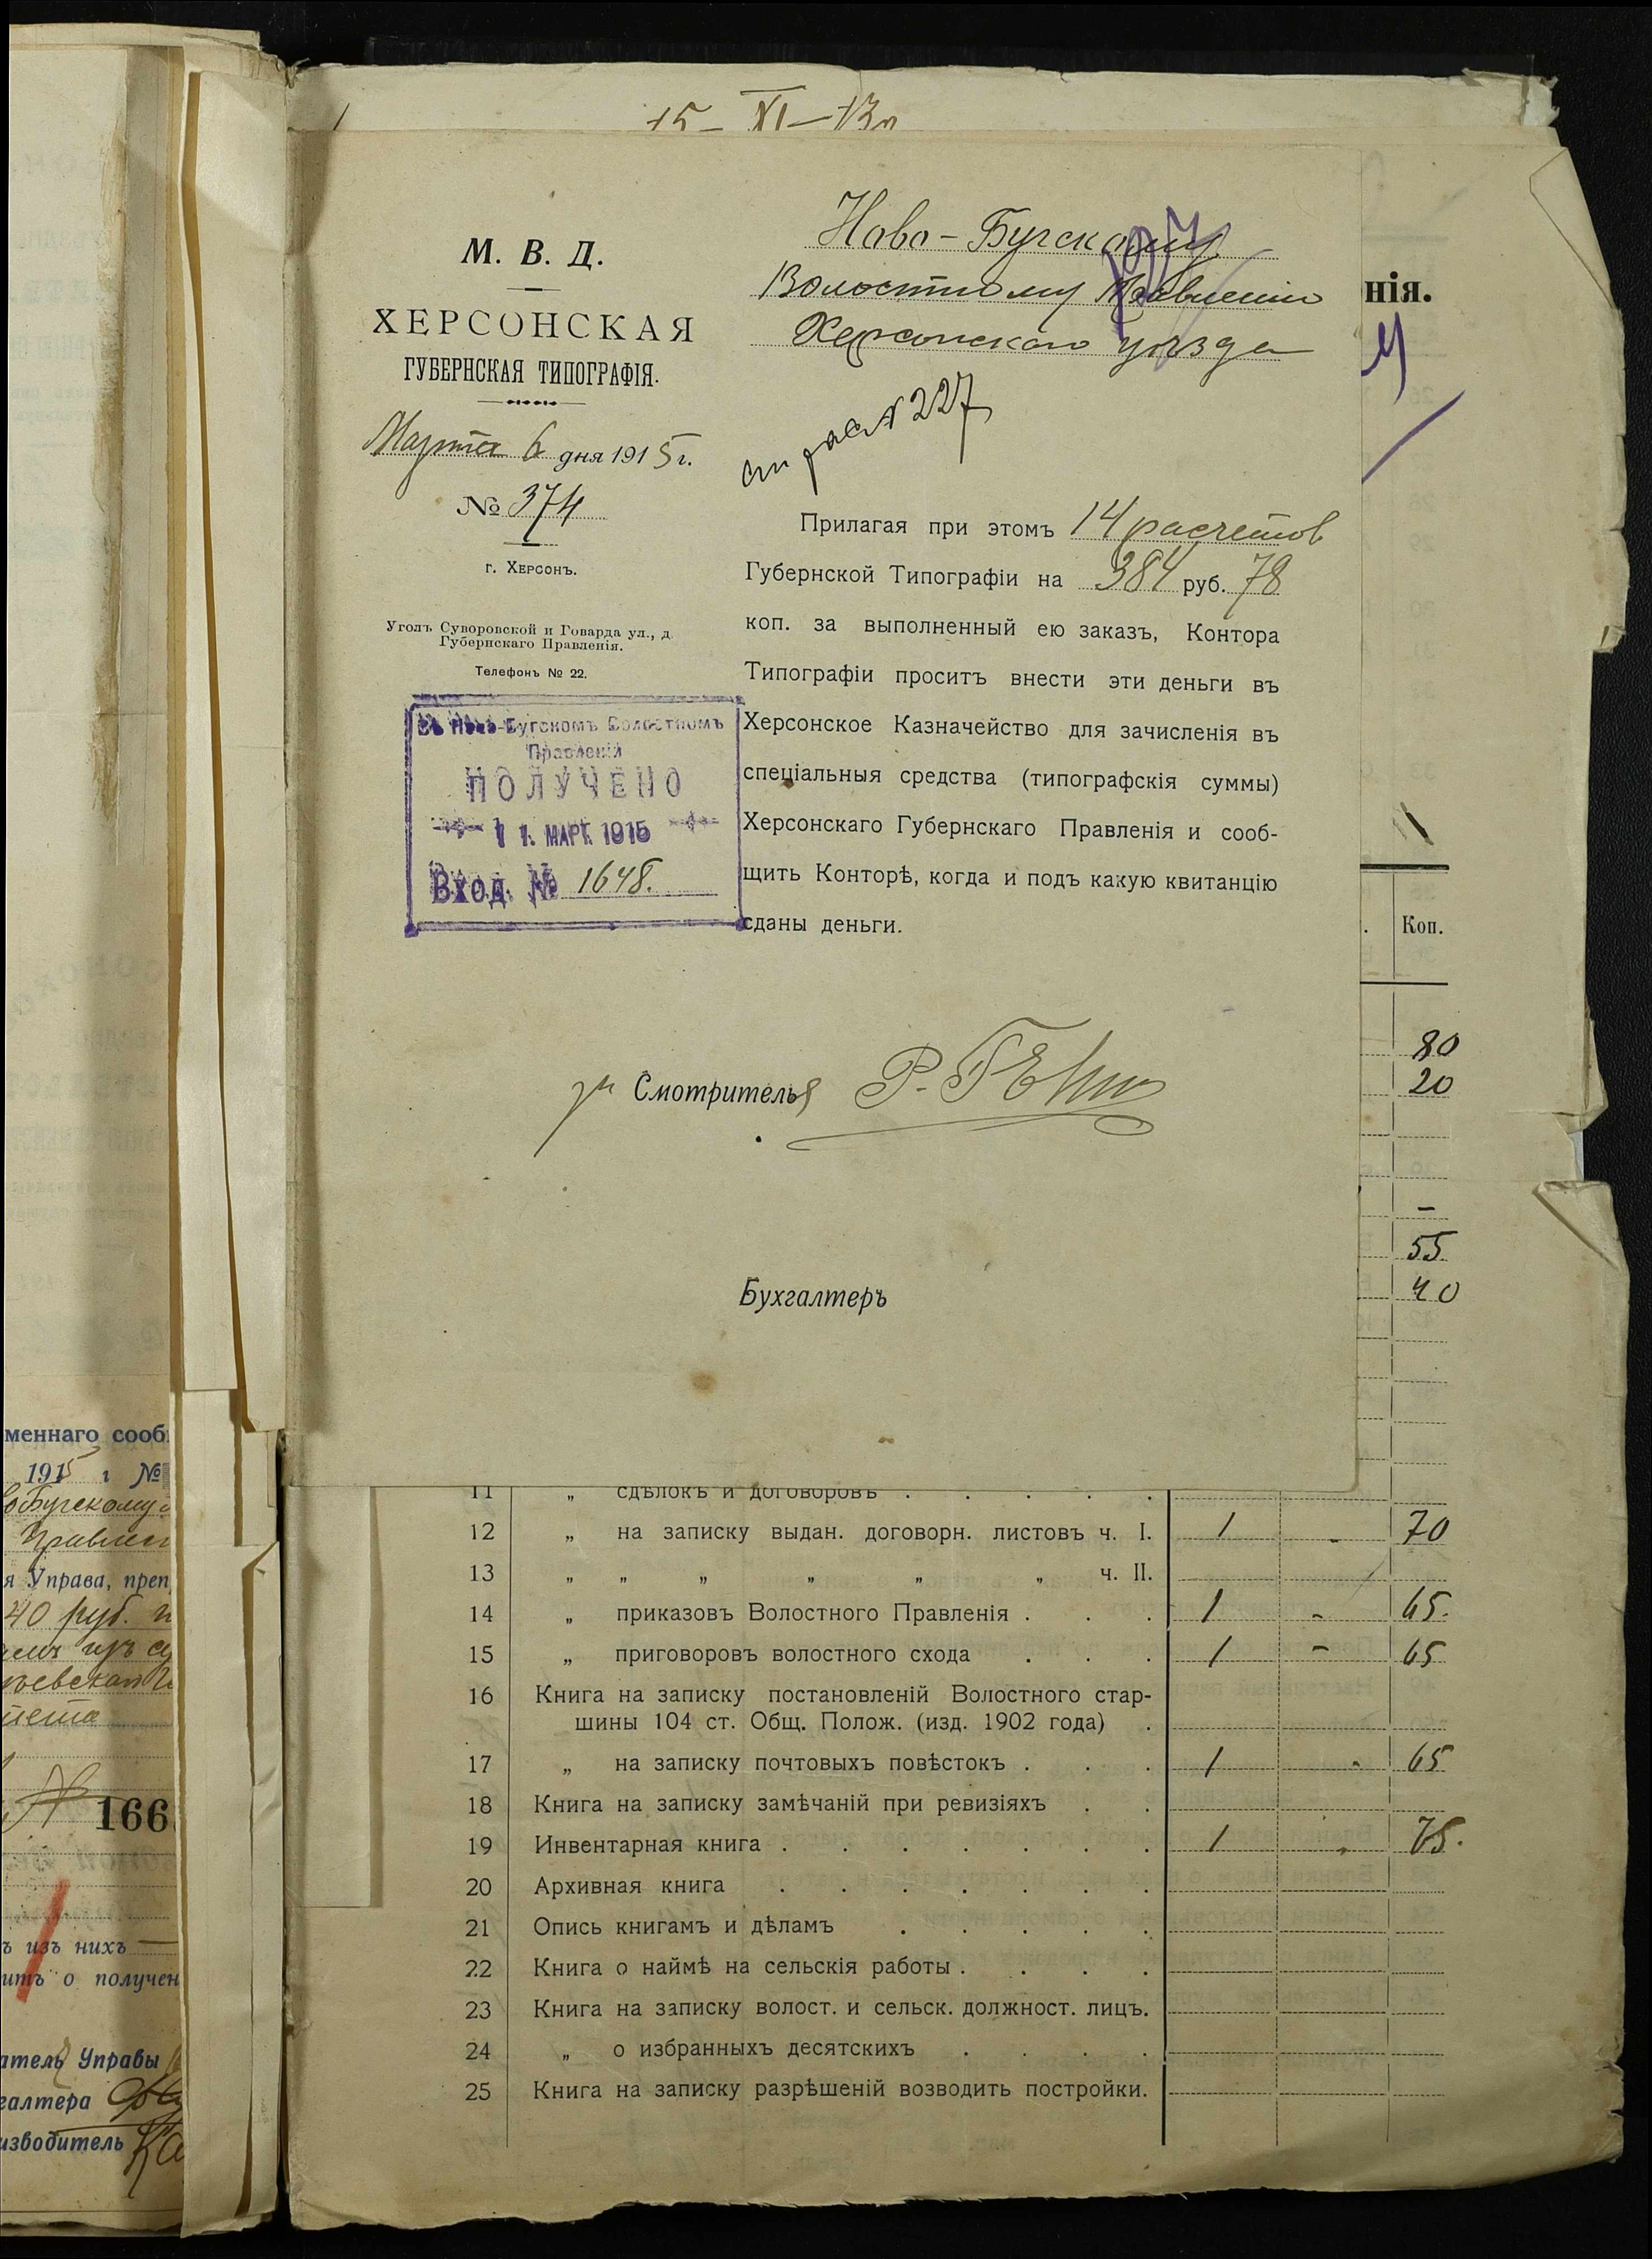 15 – XI – 13
М. В. Д.
ХЕРСОНСКАЯ
ГУБЕРНСКАЯ ТИПОГРАФІЯ.
Марта 6 дня 1915 г.
№ 374
г. ХЕРСОНЪ.
Уголъ Суворовской и Говарда ул., д.
Губернскаго Правленія.
Телефонъ № 22.
Въ Ново-Бугскомъ Волостномъ
Правленіи
ПОЛУЧЕНО
11. МАРТ. 1915
Вход. № 1648.
Ново-Бугскому
Волостному Правленію
Херсонскаго уѣзда
№ 227
Прилагая при этомъ 14 расчетов
Губернской Типографіи на 384 руб. 78
коп. за выполненный ею заказъ, Контора
Типографіи проситъ внести эти деньги въ
Херсонское Казначейство для зачисленія въ
спеціальныя средства (типографскія суммы)
Херсонскаго Губернскаго Правленія и сооб-
щить Конторѣ, когда и подъ какую квитанцію
сданы деньги.
за Смотрителя
Бухгалтеръ
нія.
Коп.
80
20
–
55
40
11 „ сдѣлокъ и договоровъ . . . . .
12 „ на записку выдан. договорн. листовъ ч. I. 1 - 70
13 „ „ „ „ „ „ ч. II.
14 „ приказовъ Волостного Правленія . . . 1 - 65.
15 „ приговоровъ волостного схода . . . 1 - 65
16 Книга на записку постановленій Волостного стар-
шины 104 ст. Общ. Полож. (изд. 1902 года) .
17 „ на записку почтовыхъ повѣстокъ . . . 1 - 65
18 Книга на записку замѣчаній при ревизіяхъ . .
19 Инвентарная книга . . . . . . . 1 - 75.
20 Архивная книга . . . . . . .
21 Опись книгамъ и дѣламъ . . . . .
22 Книга о наймѣ на сельскія работы . . . .
23 Книга на записку волост. и сельск. должност. лицъ.
24 „ о избранныхъ десятскихъ . . . .
25 Книга на записку разрѣшеній возводить постройки.
меннаго сооб
1915 г №
оБугскому
Правлен
я Управа, преп
40 руб.
166
ъ изъ нихъ —
ить о получен
атель Управы
галтера
изводитель